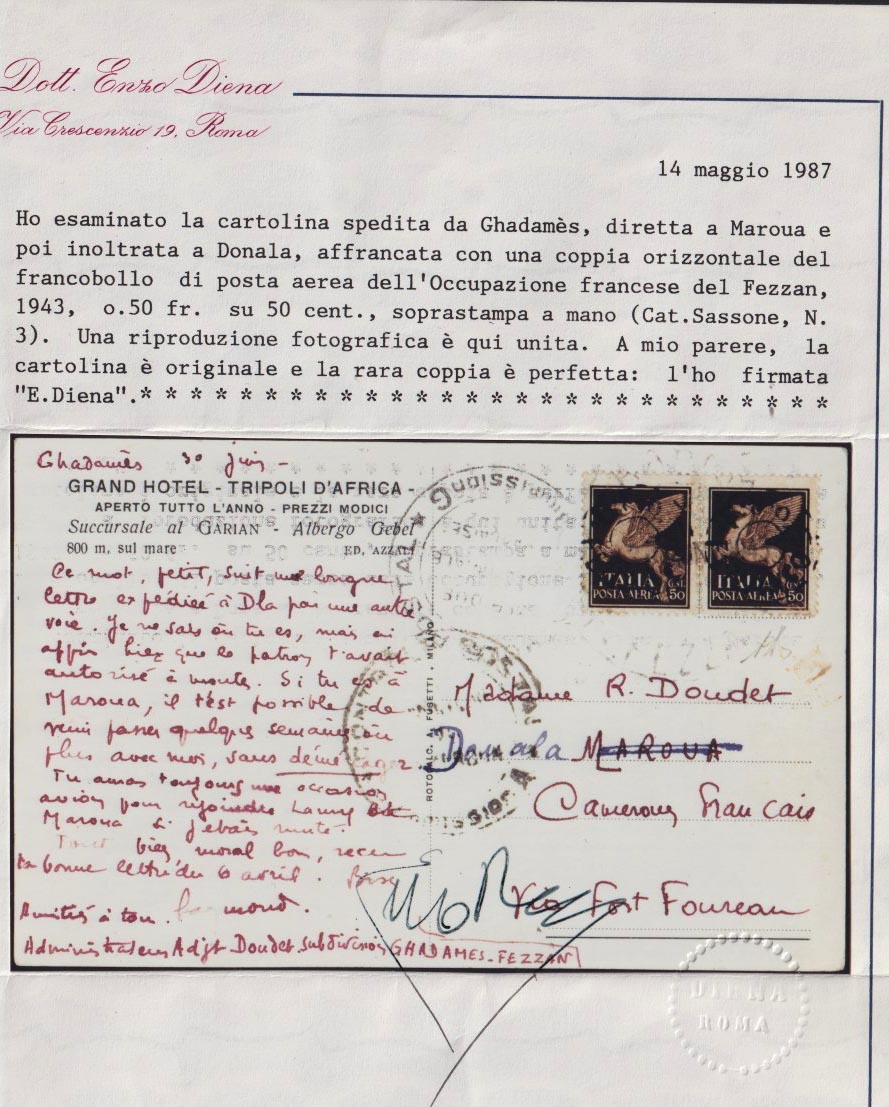 Dott. Enzo Diena
Via Crescenzio 19, Roma
14 maggio 1987
Ho esaminato la cartolina spedita da Ghadamès, diretta a Maroua e
poi inoltrata a Donala, affrancata con una coppia orizzontale del
francobollo di posta aerea dell'Occupazione francese del Fezzan,
1943, o.50 fr. su 50 cent., soprastampa a mano (Cat.Sassone, N.
3). Una riproduzione fotografica è qui unita. A mio parere, la
cartolina è originale e la rara coppia è perfetta: l'ho firmata
"E.Diena".* * * * * * * * * * * * * * * * * * * * * * * * * * * *
Ghadamès 30 juin -
GRAND HOTEL - TRIPOLI D'AFRICA -
APERTO TUTTO L'ANNO - PREZZI MODICI
Succursale al GARIAN - Albergo Gebel
800 m. sul mare ED. AZZALI
Ce mot, petit, suit une longue
lettre expédiée à Dla par une autre
voie. Je ne sais où tu es, mais ai
appris hier que le patron t'avait
autorisé à monter. Si tu es à
Maroua, il t'est possible de
venir passer quelques semaines ou
plus avec moi, sans déménager.
Tu auras toujours une occasion
avion pour rejoindre Lamy et
Maroua si
bien, moral bon, reçu
ta bonne lettre du 6 avril.
Amitiés à tous.
Administrateur Adjt Doudet subdivision GHADAMES-FEZZAN
ROTOCALC. A. FUSETTI - MILANO
ITALIA
POSTA AEREA
CENT.
50
ITALIA
POSTA AEREA
CENT.
50
Madame R. Doudet
Douala MAROUA
Cameroun Francais
Via Fort Foureau
DIENA
ROMA